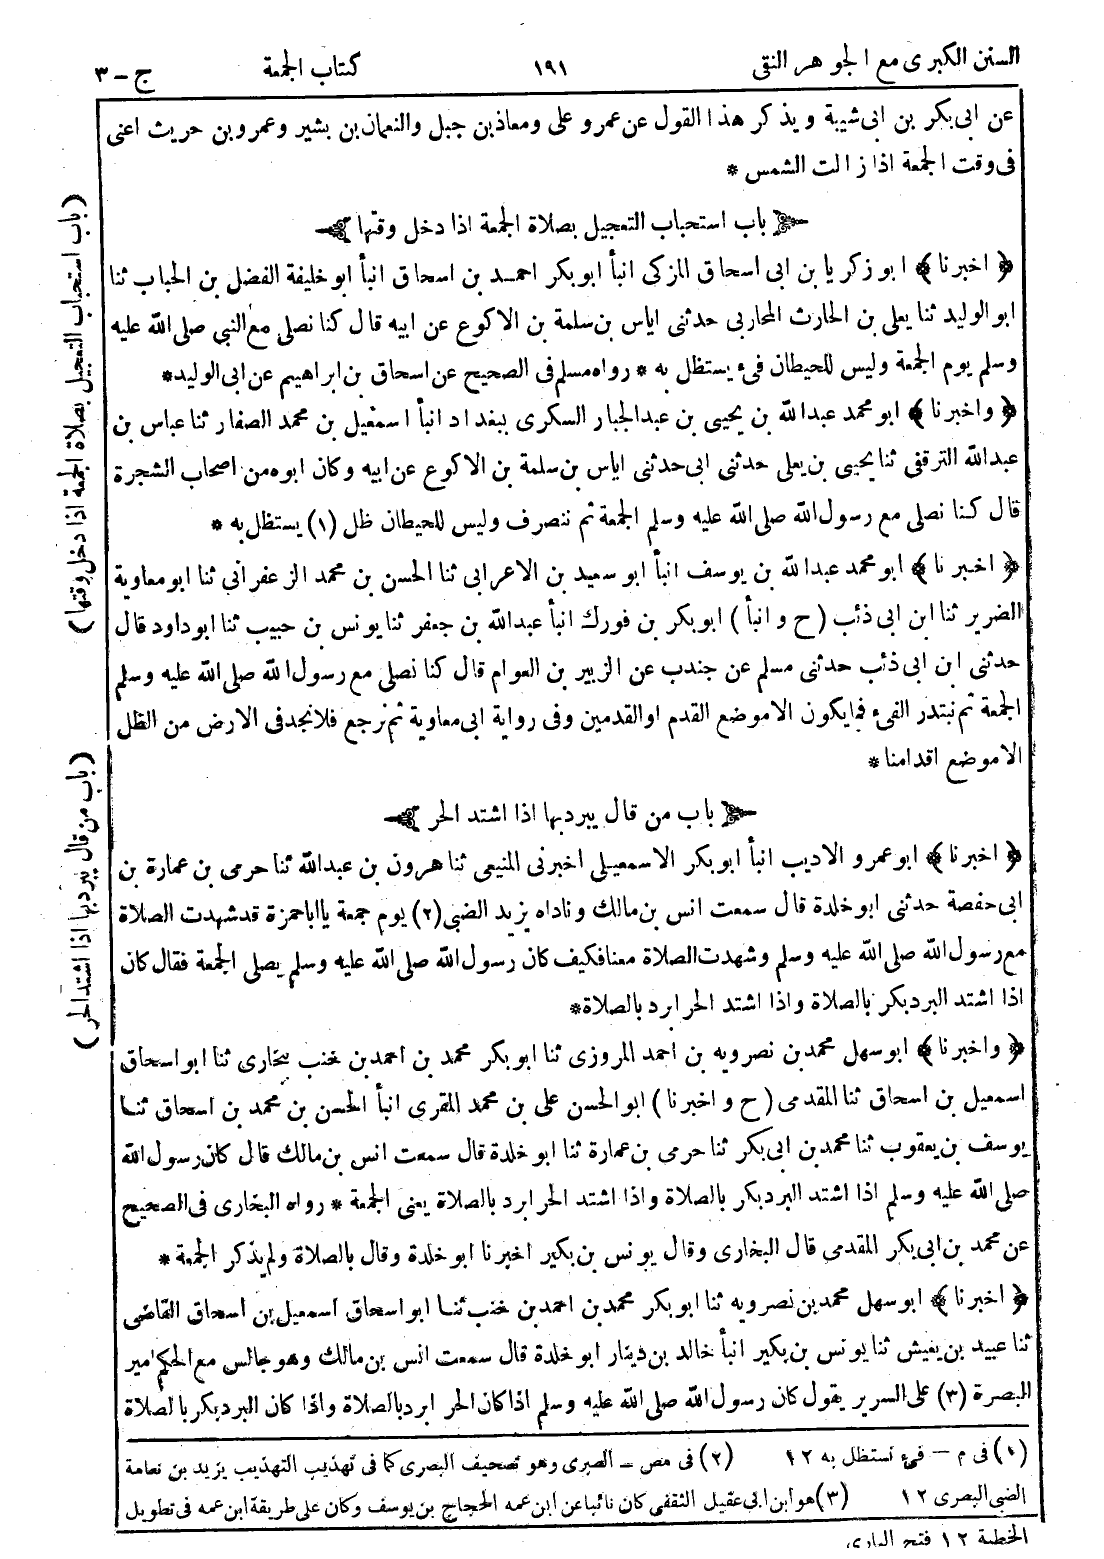 السنن الكبرى مع الجوهر النقى ١٩١ كتاب الجمعة ج - ٣
عن ابى بكر بن ابى شيبة ويذكر هذا القول عن عمر و على ومعاذ بن جبل والنعمان بن بشير وعمرو بن حريث اعنى
فى وقت الجمعة اذا زالت الشمس *
باب استحباب التعجيل بصلاة الجمعة اذا دخل وقتها
﴿ اخبرنا ﴾ ابو زكريا بن ابى اسحاق المزكى انبأ ابو بكر احمد بن اسحاق انبأ ابو خليفة الفضل بن الحباب ثنا
ابو الوليد ثنا يعلى بن الحارث المحاربى حدثنى اياس بن سلمة بن الاكوع عن ابيه قال كنا نصلى مع النبى صلى الله عليه
وسلم يوم الجمعة وليس للحيطان فىء يستظل به * رواه مسلم فى الصحيح عن اسحاق بن ابراهيم عن ابى الوليد*
﴿ واخبرنا ﴾ ابو محمد عبدالله بن يحيى بن عبدالجبار السكرى ببغداد انبأ اسمعيل بن محمد الصفار ثنا عباس بن
عبدالله الترقفى ثنا يحيى بن يعلى حدثنى ابى حدثنى اياس بن سلمة بن الاكوع عن ابيه وكان ابوه من اصحاب الشجرة
قال كنا نصلى مع رسول الله صلى الله عليه وسلم الجمعة ثم ننصرف وليس للحيطان ظل (١) يستظل به *
﴿ اخبرنا ﴾ ابو محمد عبدالله بن يوسف انبأ ابو سعيد بن الاعرابى ثنا الحسن بن محمد الزعفرانى ثنا ابو معاوية
الضرير ثنا ابن ابى ذئب ( ح و انبأ ) ابو بكر بن فورك انبأ عبدالله بن جعفر ثنا يونس بن حبيب ثنا ابو داود قال
حدثنى ابن ابى ذئب حدثنى مسلم عن جندب عن الزبير بن العوام قال كنا نصلى مع رسول الله صلى الله عليه وسلم
الجمعة ثم نبتدر الفىء فما يكون الا موضع القدم او القدمين وفى رواية ابى معاوية ثم نرجع فلا نجد فى الارض من الظل
الا موضع اقدامنا *
باب من قال يبرد بها اذا اشتد الحر
﴿ اخبرنا ﴾ ابو عمرو الاديب انبأ ابو بكر الاسمعيلى اخبرنى المنيعى ثنا هرون بن عبدالله ثنا حرمى بن عمارة بن
ابى حفصة حدثنى ابو خلدة قال سمعت انس بن مالك وناداه يزيد الضبى (٢) يوم جمعة يا ابا حمزة قد شهدت الصلاة
مع رسول الله صلى الله عليه وسلم وشهدت الصلاة معنا فكيف كان رسول الله صلى الله عليه وسلم يصلى الجمعة فقال كان
اذا اشتد البرد بكر بالصلاة واذا اشتد الحر ابرد بالصلاة*
﴿ واخبرنا ﴾ ابو سهل محمد بن نصرويه بن احمد المروزى ثنا ابو بكر محمد بن احمد بن خنب ببخارى ثنا ابو اسحاق
اسمعيل بن اسحاق ثنا المقدمى ( ح و اخبرنا ) ابو الحسن على بن محمد المقرى انبأ الحسن بن محمد بن اسحاق ثنا
يوسف بن يعقوب ثنا محمد بن ابى بكر ثنا حرمى بن عمارة ثنا ابو خلدة قال سمعت انس بن مالك قال كان رسول الله
صلى الله عليه وسلم اذا اشتد البرد بكر بالصلاة واذا اشتد الحر ابرد بالصلاة يعنى الجمعة * رواه البخارى فى الصحيح
عن محمد بن ابى بكر المقدمى قال البخارى وقال يونس بن بكير اخبرنا ابو خلدة وقال بالصلاة ولم يذكر الجمعة *
﴿ اخبرنا ﴾ ابو سهل محمد بن نصرويه ثنا ابو بكر محمد بن احمد بن خنب ثنا ابو اسحاق اسمعيل بن اسحاق القاضى
ثنا عبيد بن يعيش ثنا يونس بن بكير انبأ خالد بن دينار ابو خلدة قال سمعت انس بن مالك وهو جالس مع الحكم امير
البصرة (٣) على السرير يقول كان رسول الله صلى الله عليه وسلم اذا كان الحر ابرد بالصلاة واذا كان البرد بكر بالصلاة
(١) فى م — فىء نستظل به ١٢ (٢) فى مص ـ الصبرى وهو تصحيف البصرى كما فى تهذيب التهذيب يزيد بن نعامة
الضبى البصرى ١٢ (٣) هو ابن ابى عقيل الثقفى كان نائبا عن ابن عمه الحجاج بن يوسف وكان على طريقة ابن عمه فى تطويل
الخطبة ١٢ فتح البارى
(باب استحباب التعجيل بصلاة الجمعة اذا دخل وقتها)
(باب من قال يبرد بها اذا اشتد الحر)